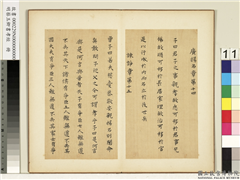 廣揚名章第十四
子曰君子之事親孝故忠可移於君事兄
悌故順可移於長居家理故治可移於官
是以行成於內而名立於後世矣
諫諍章第十五
曾子曰若夫慈愛恭敬安親揚名則聞命
矣敢問子從父之令可謂孝乎子曰是何言
與是何言與昔者天子有爭臣七人雖無道
不失其天下諸侯有爭臣五人雖無道不失
其國大夫有爭臣三人雖無道不失其家
11